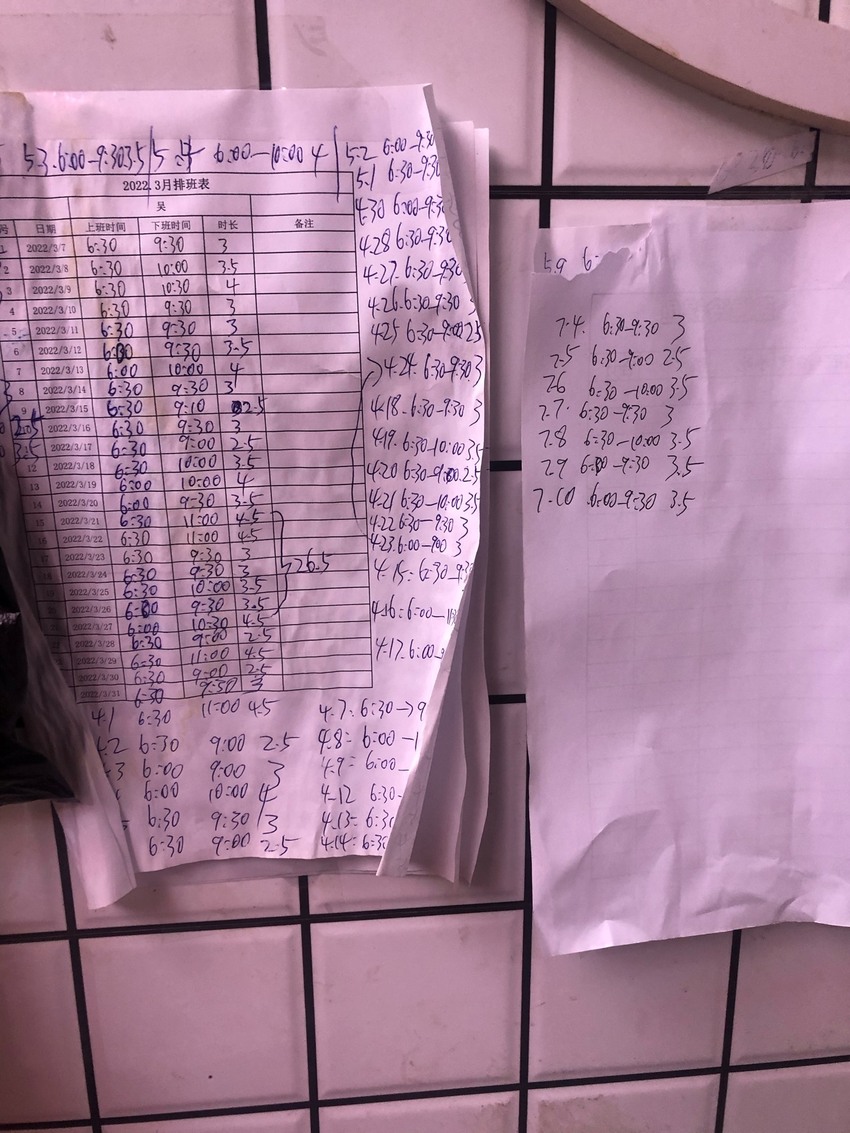 5.3. 6:00-9:30 3.5 5.4 6:00-10:00 4
2022.3月排班表
吴
号 日期 上班时间 下班时间 时长 备注
1 2022/3/7 6:30 9:30 3
2 2022/3/8 6:30 10:00 3.5
3 2022/3/9 6:30 10:30 4
4 2022/3/10 6:30 9:30 3
5 2022/3/11 6:30 9:30 3
6 2022/3/12 6:00 9:30 3.5
7 2022/3/13 6:00 10:00 4
8 2022/3/14 6:30 9:30 3
9 2022/3/15 6:30 9:10 2.5
2022/3/16 6:30 9:30 3
2022/3/17 6:30 9:00 2.5
12 2022/3/18 6:30 10:00 3.5
13 2022/3/19 6:00 10:00 4
14 2022/3/20 6:00 9:30 3.5
15 2022/3/21 6:30 11:00 4.5
16 2022/3/22 6:30 11:00 4.5
17 2022/3/23 6:30 9:30 3
2022/3/24 6:30 9:30 3
2022/3/25 6:30 10:00 3.5
2022/3/26 6:00 9:30 3.5
2022/3/27 6:00 10:30 4.5
2022/3/28 6:30 9:00 2.5
2022/3/29 6:30 11:00 4.5
2022/3/30 6:30 9:00 2.5
2022/3/31 6:30 9:30 3
26.5
2.5
3.5
4.1 6:30 11:00 4.5
2 6:30 9:00 2.5
3 6:00 9:00 3
6:00 10:00 4
6:30 9:30 3
6:30 9:00 2.5
5.2 6:00-9:30
5.1 6:30-9:30
4.30 6:00-9:30
4.28 6:30-9:30
4.27. 6:30-9:30
4.26. 6:30-9:30 3
4.25 6:30-9:00 2.5
4.24. 6:30-9:30 3
4.18. 6:30-9:30 3
4.19. 6:30-10:00 3.5
4.20 6:30-9:00. 2.5
4.21 6:30-10:00 3.5
4.22 6:30-9:30 3
4.23. 6:00-9:00 3
4.15: 6:30-9:3
4.16: 6:00-11:
4.17. 6:00-9
4.7: 6:30→9
4.8: 6:00-1
4.9: 6:00-
4.12 6:30-
4.13: 6:3
4.14: 6:30
5.9 6-
7.4. 6:30-9:30 3
7.5 6:30-9:00 2.5
7.6 6:30-10:00 3.5
7.7. 6:30-9:30 3
7.8 6:30-10:00 3.5
7.9 6:00-9:30 3.5
7.10 6:00-9:30 3.5